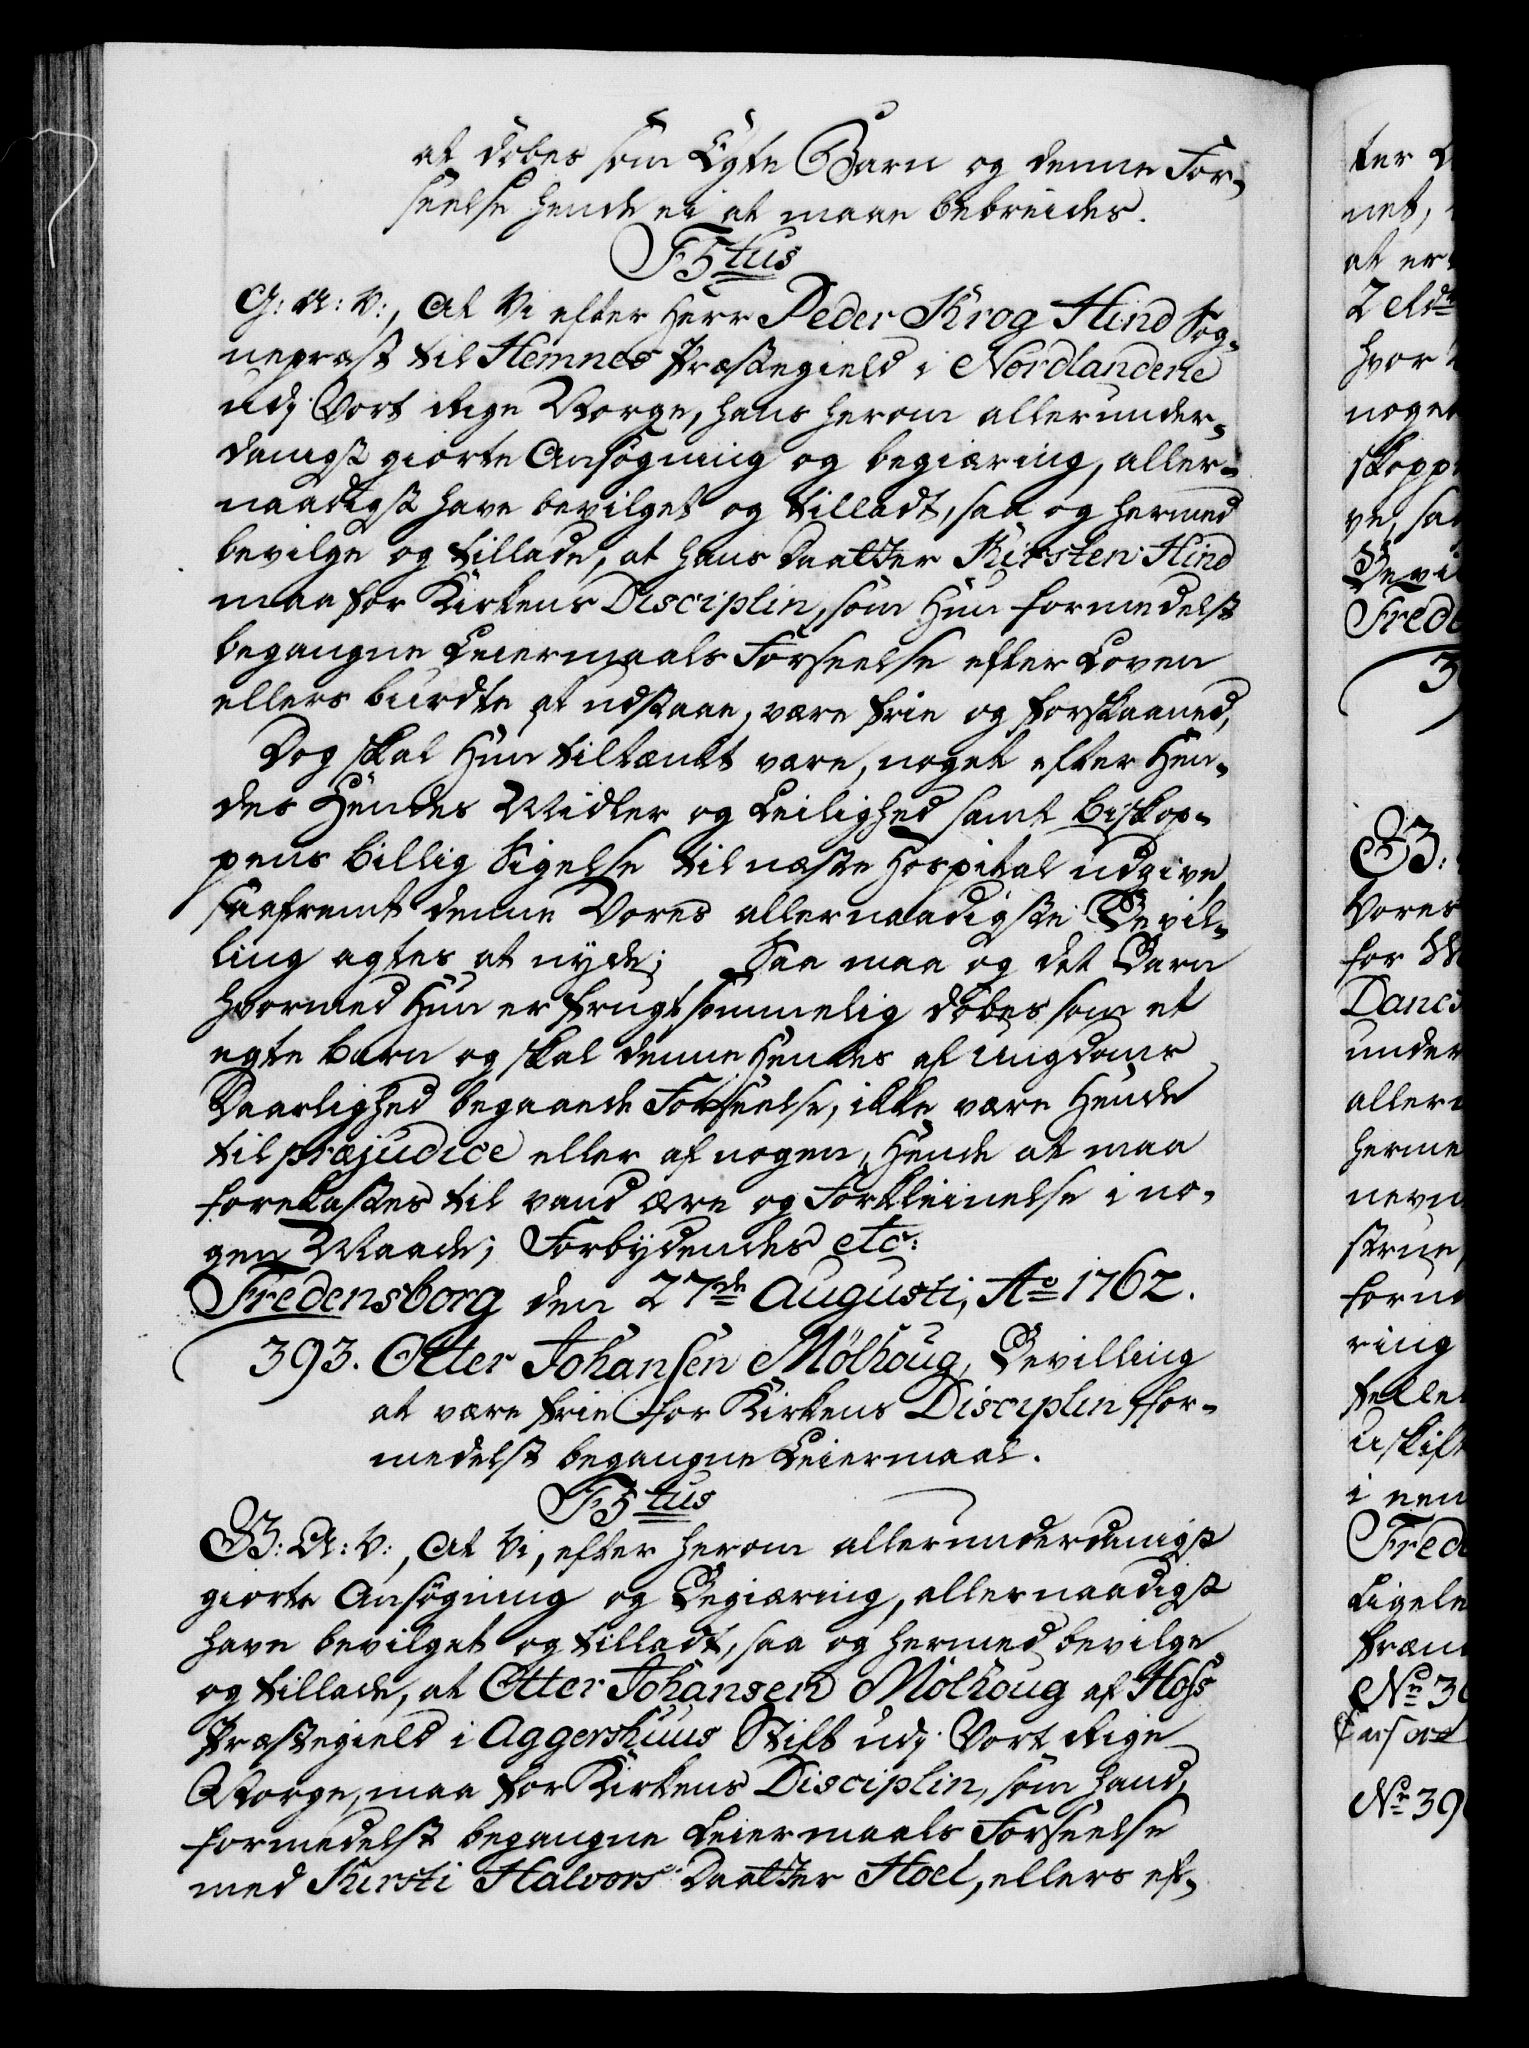 at döbes som Egte Barn og denne For-
seelse hende ei at maae bebreides.
F5tus
G: A: V:, At Vi efter Herr Peder Krog Hind Sog-
nepræst til Hemnes Præstegield i Nordlandene
udj Vort Rige Norge, hans herom allerunder-
danigst giorte Ansøgning og begiæring, aller-
naadigst have bevilget og tilladt, saa og hermed
bevilge og tillade, at hans Daatter Kirsten Hind
maa for Kirkens Disciplin, som Hun formedelst
begangne Leiermaals Forseelse efter Loven
ellers burdte at udstaae, være frie og forskaaned,
Dog skal Hun tiltænkt være, noget efter Hen-
des Hendes Midler og Leilighed samt Biskop-
pens billig Sigelse til næste Hospital udgive,
saafremt denne Vores allernaadigste Bevil-
ling agtes at nyde; Saa maa og det Barn
hvormed Hun er frugtsommelig döbes som et
egte barn og skal denne Hendes af Ungdoms
Daarlighed begaaede Forseelse, ikke være Hende
til præjudice eller af nogen, Hende at maa
forekastes til vand ære og Forkleinelse i no-
gen Maade; Forbydendes etc:
Fredensborg den 27de Augusti, Ao 1762.
393. Otter Johansen Mølhoug, Bevilling
at være frie for Kirkens Disciplin for-
medelst begangne Leiermaal.
F5tus
G: A: V:, At Vi, efter herom allerunderdanigst
giorte Ansøgning og Begiæring, allernaadigst
have bevilget og tilladt, saa og hermed bevilge
og tillade, at Otter Johansen Mölhoug af Hofs
Præstegield i Aggershuus Stift udj Vort Rige
Norge, maa for Kirkens Disciplin, som hand,
formedelst begangne Leiermaals Forseelse
med Kirsti Halvors Daatter Hoel, ellers ef-